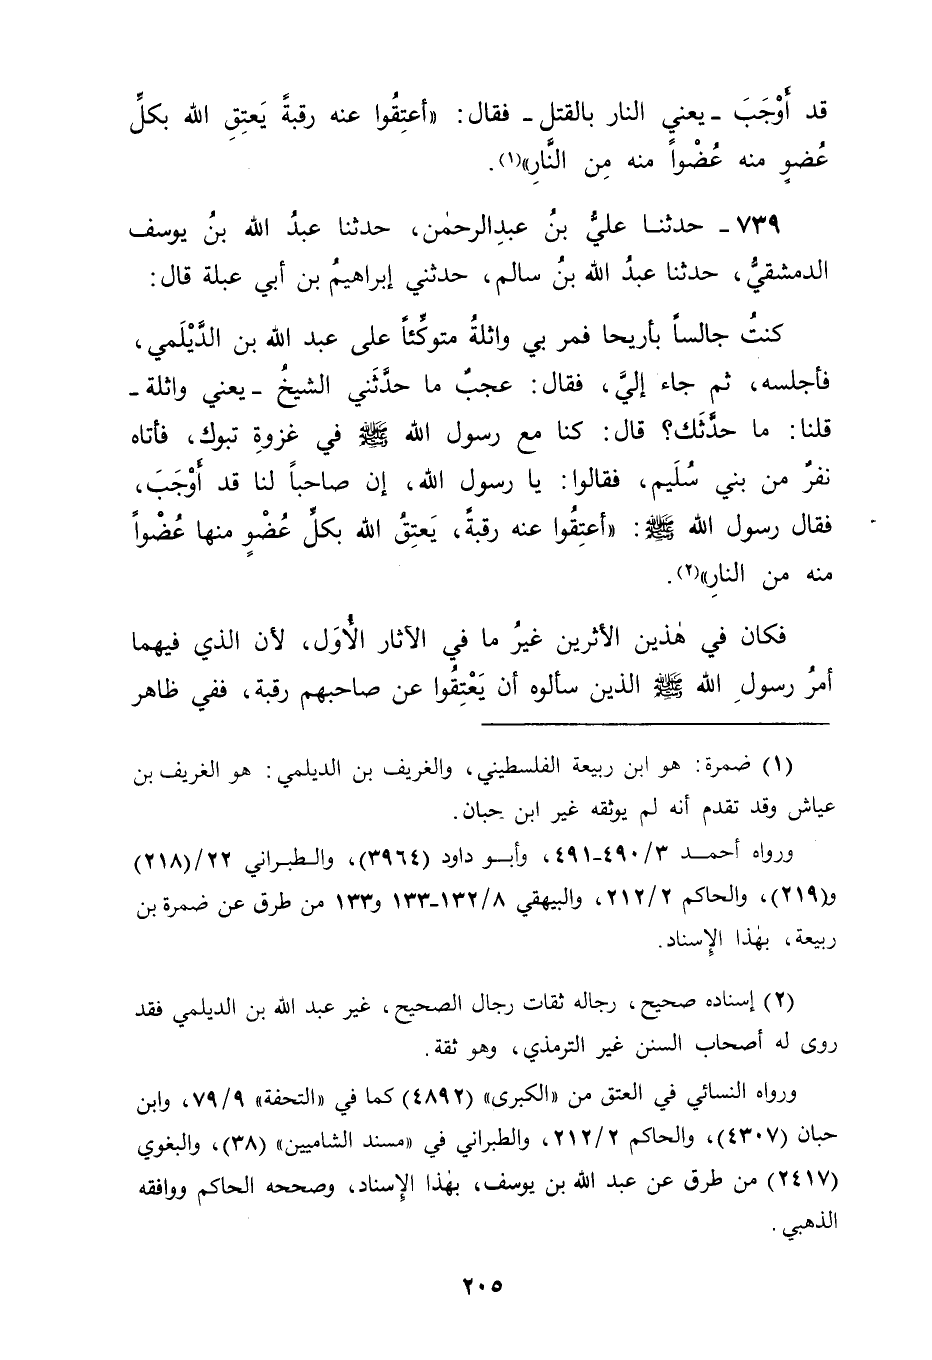 قد أَوْجَبَ ـ يعني النار بالقتل ـ فقال: «أعتِقُوا عنه رقبةً يَعتِقِ الله بكلِّ
عُضوٍ منه عُضْواً منه مِن النَّارِ»(١).
٧٣٩ ـ حدثنا عليُّ بنُ عبدِالرحمٰن، حدثنا عبدُ الله بنُ يوسف
الدمشقيُّ، حدثنا عبدُ الله بنُ سالم، حدثني إبراهيمُ بن أبي عبلة قال:
كنتُ جالساً بأريحا فمر بي واثلةُ متوكِّئاً على عبد الله بن الدَّيْلَمي،
فأجلسه، ثم جاء إليَّ، فقال: عجبٌ ما حدَّثَني الشيخُ ـ يعني واثلة ـ
قلنا: ما حدَّثَك؟ قال: كنا مع رسول الله ﷺ في غزوةِ تبوك، فأتاه
نفرٌ من بني سُلَيم، فقالوا: يا رسول الله، إن صاحباً لنا قد أَوْجَبَ،
فقال رسول الله ﷺ: «أعتِقُوا عنه رقبةً، يَعتِقُ الله بكلِّ عُضْوٍ منها عُضْواً
منه من النارِ»(٢).
فكان في هٰذين الأثرين غيرُ ما في الآثار الأُوَل، لأن الذي فيهما
أمرُ رسولِ الله ﷺ الذين سألوه أن يَعْتِقُوا عن صاحبهم رقبة، ففي ظاهر
(١) ضمرة: هو ابن ربيعة الفلسطيني، والغريف بن الديلمي: هو الغريف بن
عياش وقد تقدم أنه لم يوثقه غير ابن حبان.
ورواه أحمد ٣/ ٤٩٠-٤٩١، وأبو داود (٣٩٦٤)، والطبراني ٢٢/(٢١٨)
و(٢١٩)، والحاكم ٢/ ٢١٢، والبيهقي ٨/ ١٣٢-١٣٣ و١٣٣ من طرق عن ضمرة بن
ربيعة، بهٰذا الإسناد.
(٢) إسناده صحيح، رجاله ثقات رجال الصحيح، غير عبد الله بن الديلمي فقد
روى له أصحاب السنن غير الترمذي، وهو ثقة.
ورواه النسائي في العتق من «الكبرى» (٤٨٩٢) كما في «التحفة» ٩/ ٧٩، وابن
حبان (٤٣٠٧)، والحاكم ٢/ ٢١٢، والطبراني في «مسند الشاميين» (٣٨)، والبغوي
(٢٤١٧) من طرق عن عبد الله بن يوسف، بهٰذا الإسناد، وصححه الحاكم ووافقه
الذهبي.
٢٠٥